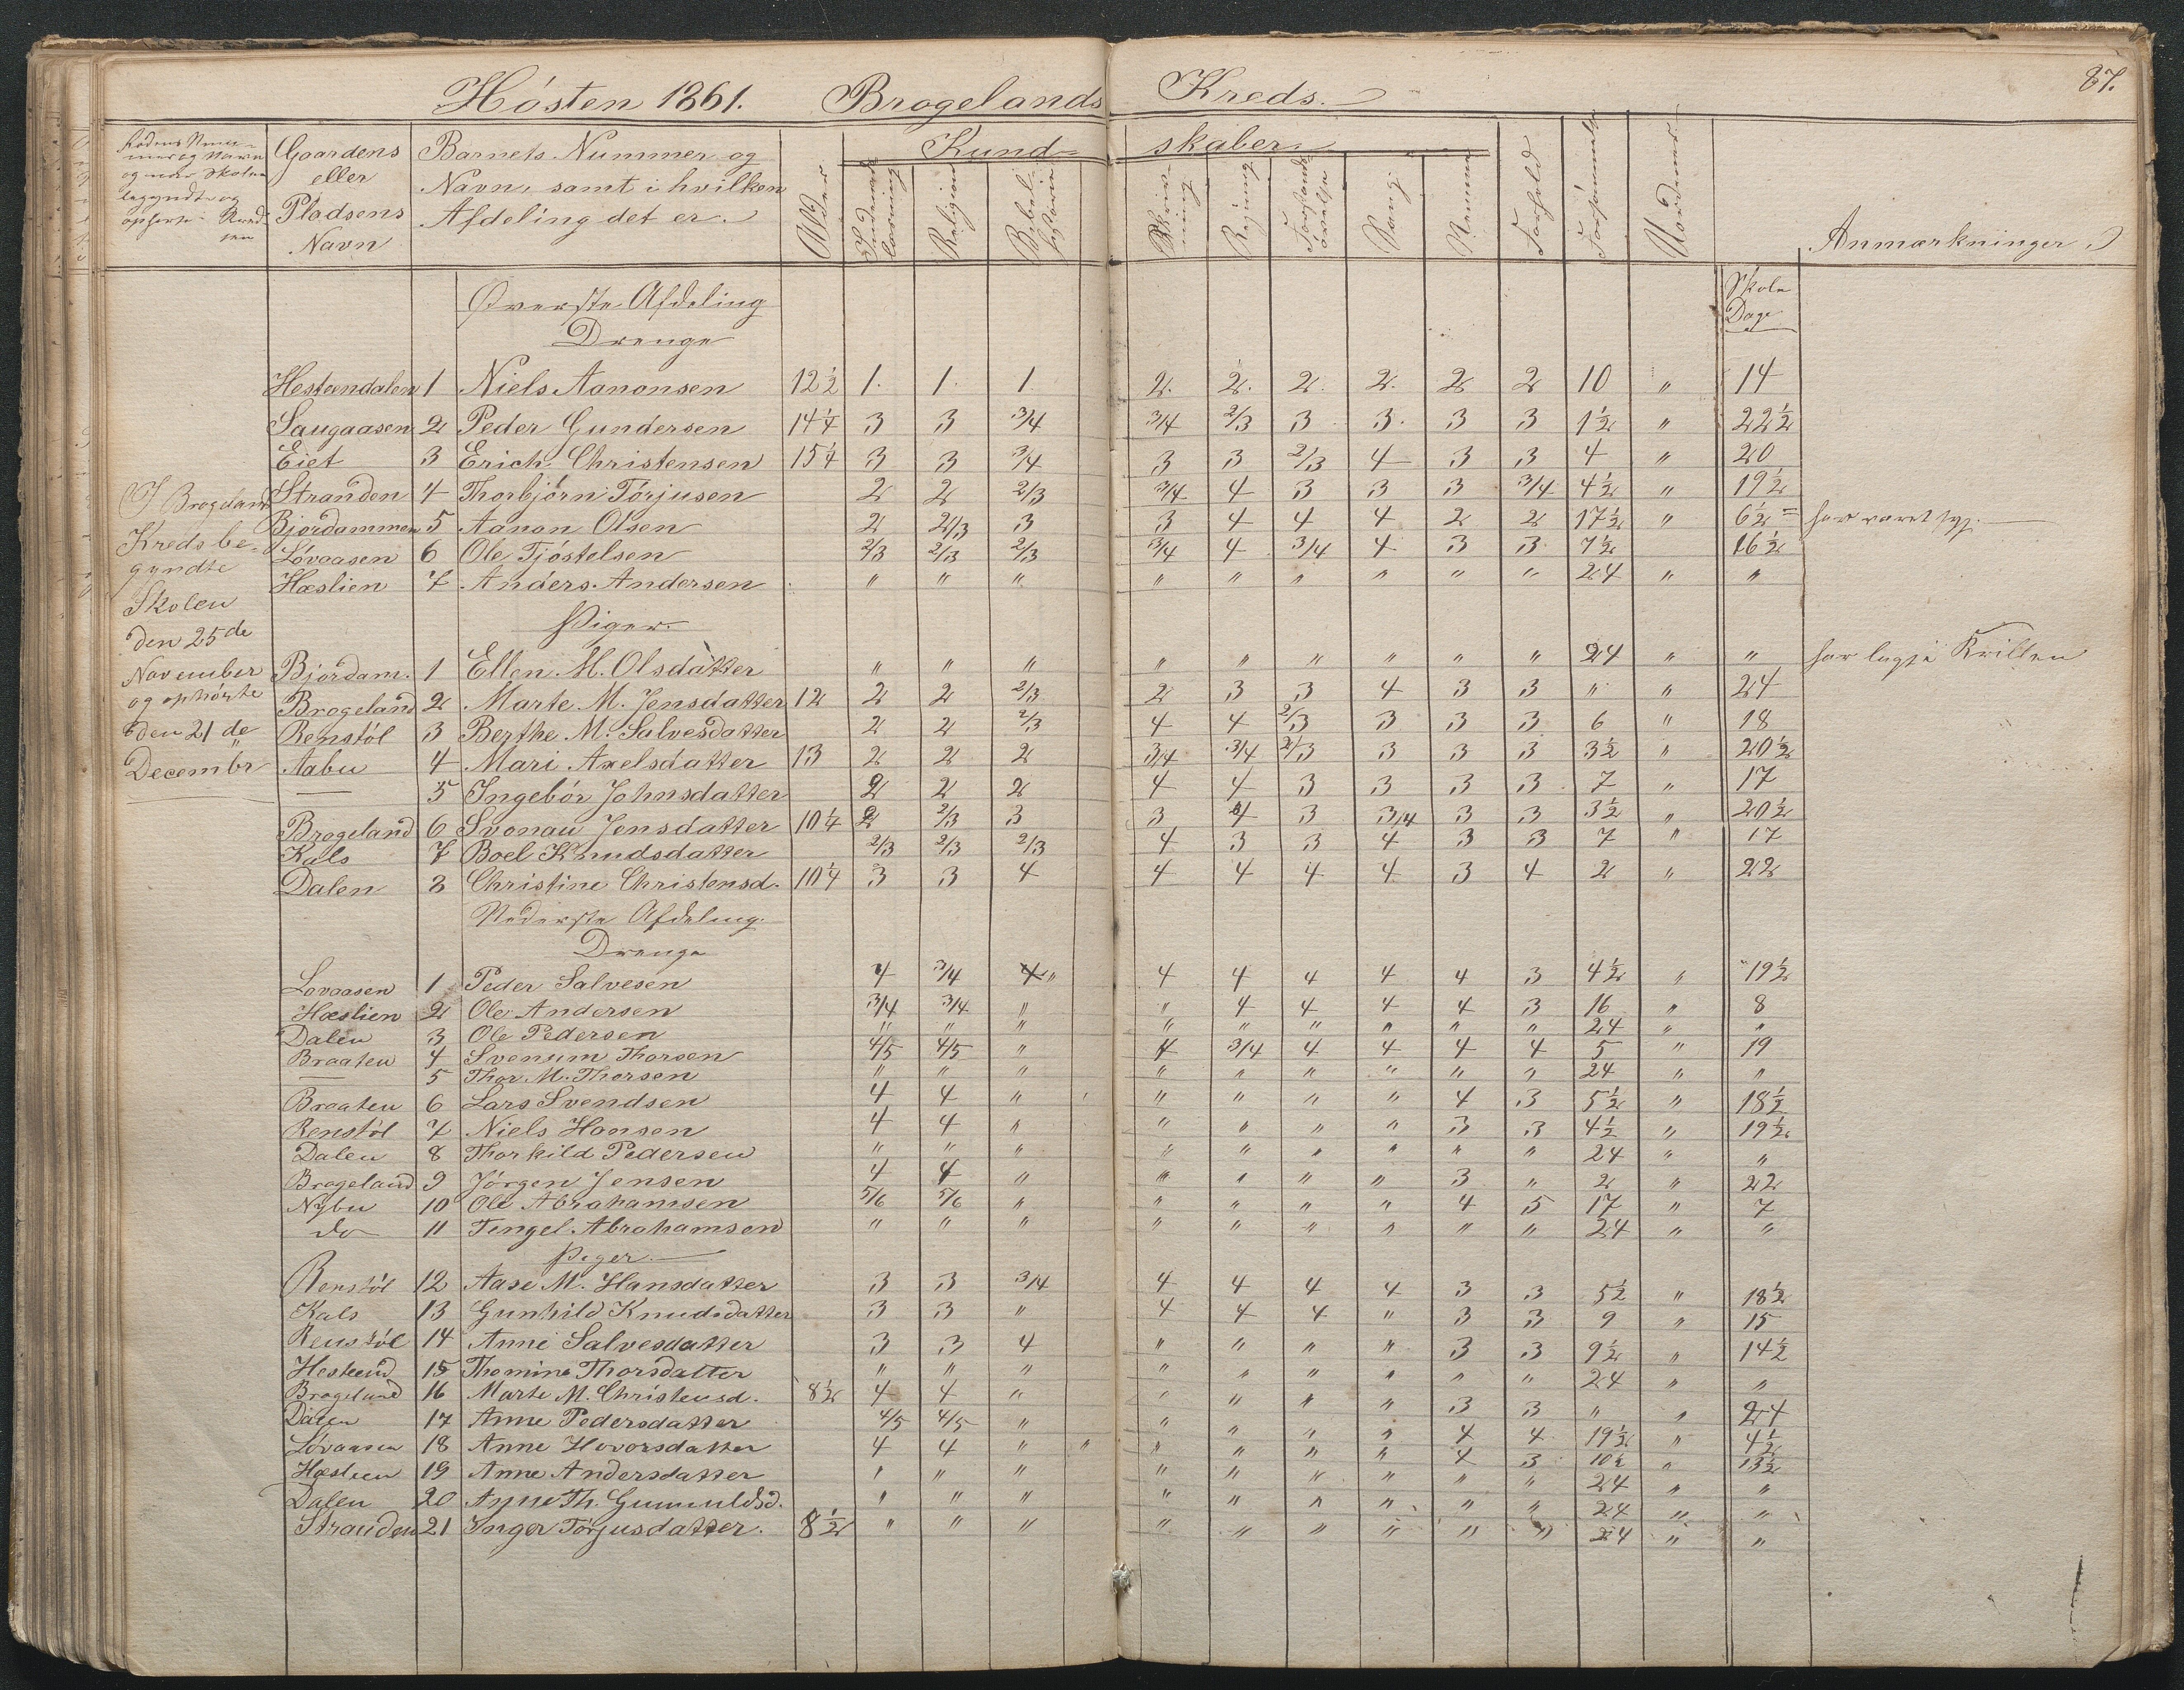 87.
Hösten 1861. Brogelands Kreds.
Rodens Num-
mer og Navn
og naar Skolen
begyndte og
ophørte i Kred-
sen
Gaardens
eller
Pladsens
Navn
Barnets Nummer og
Navn, samt i hvilken
Afdeling det er.
Alder
Kund- skaber.
Indenads
læsning
Religion
Bibel-
historie
Skriv-
ning
Regning
Forstands
øvelse
Sang
Nemme
Forhold
Forsømmelse
Uordener
Anmærkninger
Øverste Afdeling
Drenge
Skole
Dage
Hesteendalen 1 Niels Aanonsen 12½ 1. 1. 1 2. 2. 2. 2. 2 2 10 " 14
Saugaasen 2 Peder Gundersen 14¼ 3 3 3/4 3/4 2/3 3 3. 3 3 1½ " 22½
Eiet 3 Erich Christensen 15¼ 3 3 3/4 3 3 2/3 4 3 3 4 " 20
Stranden 4 Thorbjörn Törjusen 2 2 2/3 3/4 4 3 3 3 3/4 4½ " 19½
Bjordammen 5 Aanon Olsen 2 2/3 3 3 4 4 4 2 2 17½ " 6½ har været syg.
Lövaasen 6 Ole Tjöstelsen 2/3 2/3 2/3 3/4 4 3/4 4 3 3 7½ 16½
Hæslien 7 Anders Andersen " " " " " " " " " 24 " "
I Brogeland
Kreds be-
gyndte
Skolen
den 25de
November
og ophörte
den 21de
Decembr
Piger
Bjordam. 1 Ellen M. Olsdatter " " " " " " " " " 24 " " har lugja Krillen
Brogeland 2 Marte M. Jensdatter 12 2 2 2/3 2 3 3 4 3 3 " " 24
Renstöl 3 Berthe M. Salvesdatter 2 2 2/3 4 4 2/3 3 3 3 6 " 18
Aabu 4 Mari Axelsdatter 13 2 2 2 3/4 3/4 2/3 3 3 3 3½ " 20½
— 5 Ingebör Johnsdatter 2 2 2 4 4 3 3 3 3 7 " 17
Brogeland 6 Svonau Jensdatter 10¼ 2 2/3 3 3 4 3 3/4 3 3 3½ " 20½
Kals 7 Boel Knudsdatter 2/3 2/3 2/3 4 3 3 4 3 3 7 " 17
Dalen 8 Christine Christensd. 10¼ 3 3 4 4 4 4 4 3 4 2 " 22
Nederste Afdeling.
Drenge
Lovaasen 1 Peder Salvesen 4 3/4 4 " 4 4 4 4 4 3 4½ " 19½
Hæslien 2 Ole Andersen 3/4 3/4 " " 4 4 4 4 3 16 " 8
Dalen 3 Ole Pedersen " " " " " " " " " 24 " "
Braaten 4 Svenum Thorsen 4/5 4/5 " 4 3/4 4 4 4 4 5 " 19
— 5 Thor M. Thorsen " " " " " " " " " 24 " "
Braaten 6 Lars Svendsen 4 4 " " " " " 4 3 5½ " 18½
Renstöl 7 Niels Hansen 4 4 " " " " " 3 3 4½ " 19½
Dalen 8 Thorkild Pedersen " " " " " " " " " 24 " "
Brogeland 9 Jörgen Jensen 4 4 " " " " " 3 " 2 " 22
Nybu 10 Ole Abrahamsen 5/6 5/6 " " " " " 4 5 17 " 7
do 11 Tengel Abrahamsen " " " " " " " " " 24 " "
Piger
Renstöl 12 Aase M. Hansdatter 3 3 3/4 4 4 4 4 3 3 5½ " 18½
Kals 13 Gunhild Knudsdatter 3 3 " 4 4 4 " 3 3 9 " 15
Renstöl 14 Anne Salvesdatter 3 3 4 " " " " 3 3 9½ " 14½
Hesteend 15 Thomine Thorsdatter " " " " " " " " " 24 " "
Brogeland 16 Marte M. Christensd. 8½ 4 4 " " " " " 3 3 " " 24
Dalen 17 Anne Pedersdatter 4/5 4/5 " " " " " 4 4 19½ " 4½
Lövaasen 18 Anne Hovorsdatter 4 4 " " " " " " 4 3 10½ " 13½
Hæslien 19 Anne Andersdatter " " " " " " " " " 24 " "
Dalen 20 Anne Th. Gunnuldsd. " " " " " " " " " 24 " "
Stranden 21 Inger Törjusdatter. 8½ " " " " " " " " " 24 " "